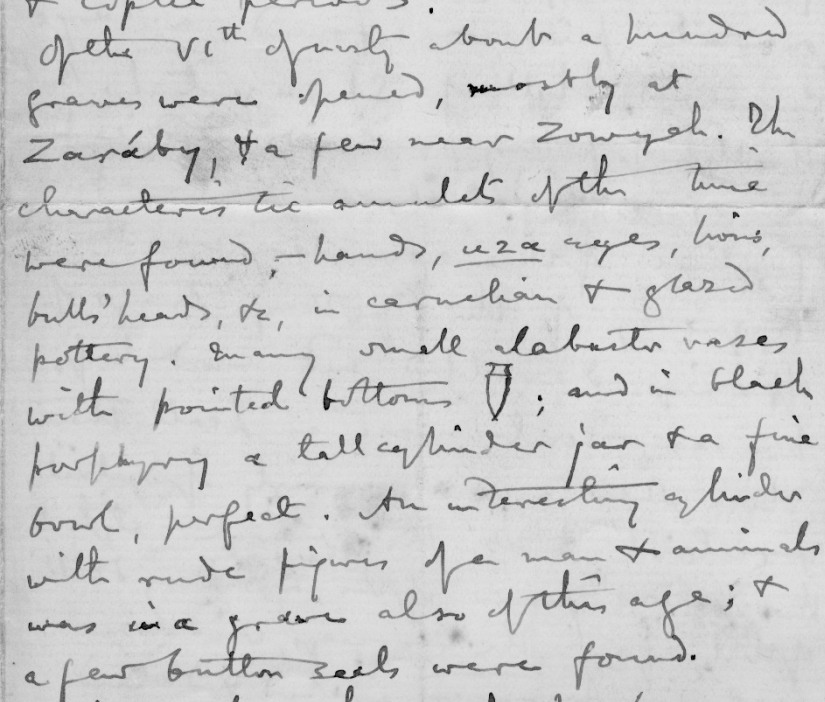 & Coptic periods.
Of the VIth dynasty about a hundred
graves were opened, mostly at
Zaráby, & a few near Zowyeh. The
characteristic amulets of the time
were found, – hands, uza eyes, lions,
bulls' heads, &c, in carnelian & glazed
pottery. Many small alabaster vases
with pointed bottoms ; and in black
porphyry a tall cylinder jar & a fine
bowl, perfect. An interesting cylinder
with rude figures of a man & animals
was in a grave also of this age; &
a few button seals were found.